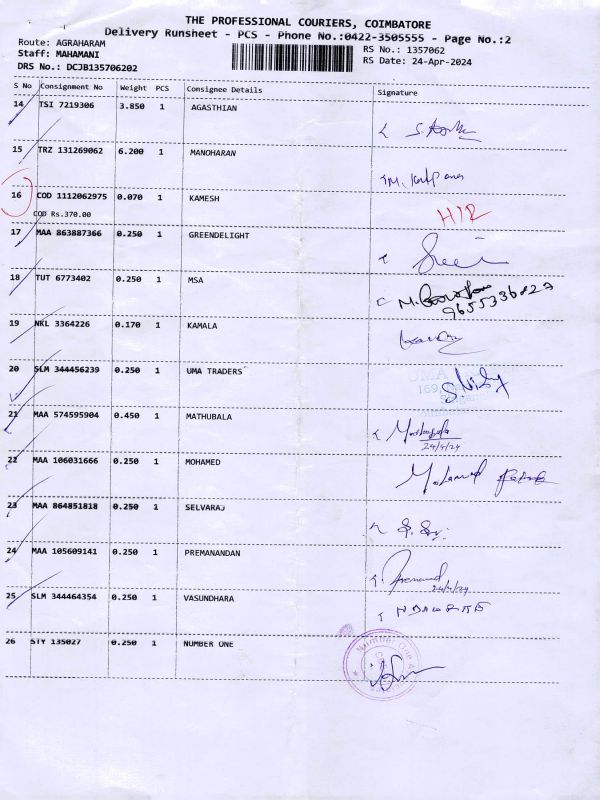 THE PROFESSIONAL COURIERS, COIMBATORE
Delivery Runsheet - PCS - Phone No.:0422-3505555 - Page No.:2
Route: AGRAHARAM
RS No.: 1357062
Staff: MAHAMANI
RS Date: 24-Apr-2024
DRS No.: DCJB135706202
S No Consignment No Weight PCS Consignee Details Signature
14 TSI 7219306 3.850 1 AGASTHIAN
15 TRZ 131269062 6.200 1 MANOHARAN
16 COD 1112062975 0.070 1 KAMESH
COD Rs.370.00
17 MAA 863887366 0.250 1 GREENDELIGHT
18 TUT 6773402 0.250 1 MSA
9655336829
19 NKL 3364226 0.170 1 KAMALA
20 SLM 344456239 0.250 1 UMA TRADERS
UMA
169,
21 MAA 574595904 0.450 1 MATHUBALA
Mathubala
24/4/24
22 MAA 106031666 0.250 1 MOHAMED
Mohamed
23 MAA 864851818 0.250 1 SELVARAJ
24 MAA 105609141 0.250 1 PREMANANDAN
24/4/24
25 SLM 344464354 0.250 1 VASUNDHARA
26 STY 135027 0.250 1 NUMBER ONE
Number One